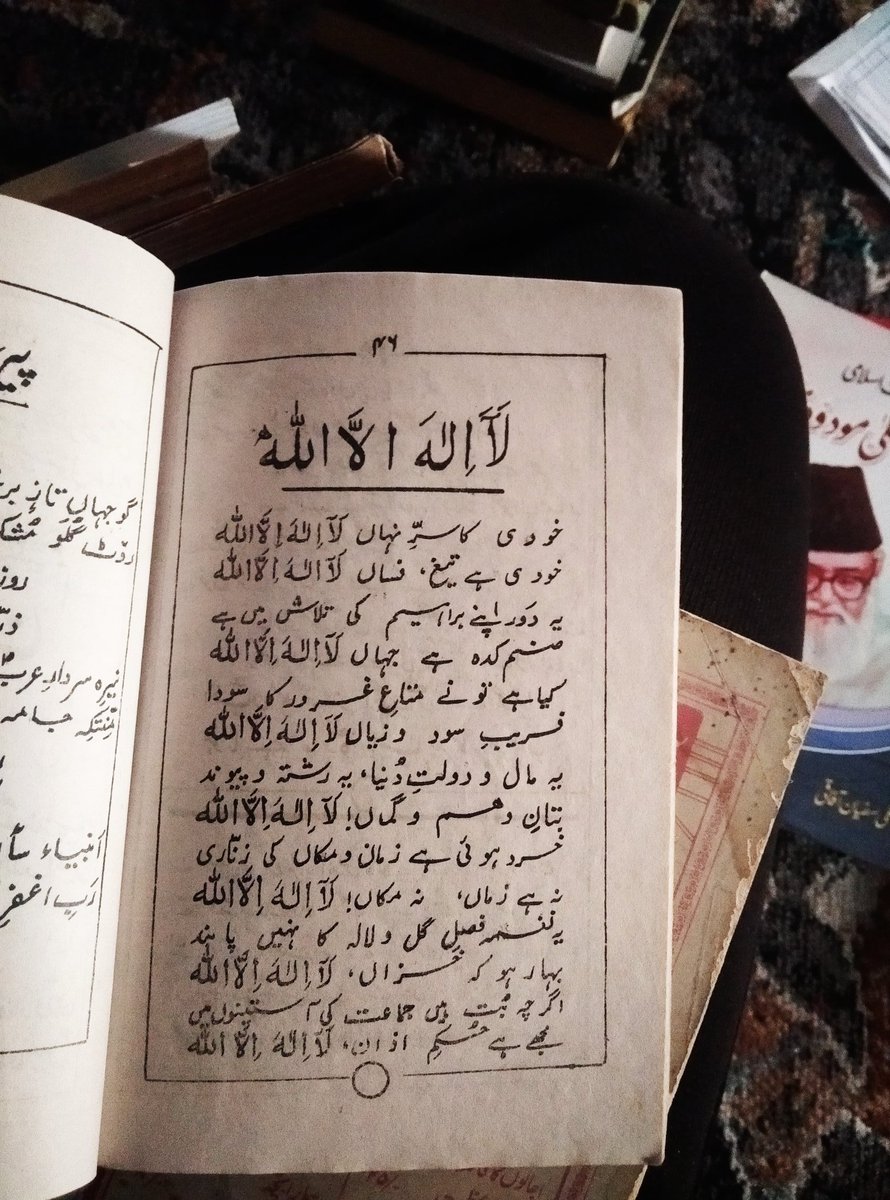 ۴۶
لَآ اِلٰهَ اِلَّا اللّٰه
خودی کا سرِّ نہاں لَآ اِلٰهَ اِلَّا اللّٰه
خودی ہے تیغ، فساں لَآ اِلٰهَ اِلَّا اللّٰه
یہ دَور اپنے براہیم کی تلاش میں ہے
صنم کدہ ہے جہاں لَآ اِلٰهَ اِلَّا اللّٰه
کیا ہے تو نے متاعِ غرور کا سودا
فریبِ سود و زیاں لَآ اِلٰهَ اِلَّا اللّٰه
یہ مال و دولتِ دُنیا، یہ رشتہ و پیوند
بتانِ وہم و گماں! لَآ اِلٰهَ اِلَّا اللّٰه
خرد ہوئی ہے زمان و مکاں کی زنّاری
نہ ہے زماں، نہ مکاں! لَآ اِلٰهَ اِلَّا اللّٰه
یہ نغمہ فصلِ گل و لالہ کا نہیں پابند
بہار ہو کہ خزاں، لَآ اِلٰهَ اِلَّا اللّٰه
اگرچہ بُت ہیں جماعت کی آستینوں میں
مجھے ہے حُکمِ اذاں، لَآ اِلٰهَ اِلَّا اللّٰه
گو جہاں تاز
روز
سردارِ عرب
جامہ
انبیاء
رَبِّ اغفر
مودو
آفاقی